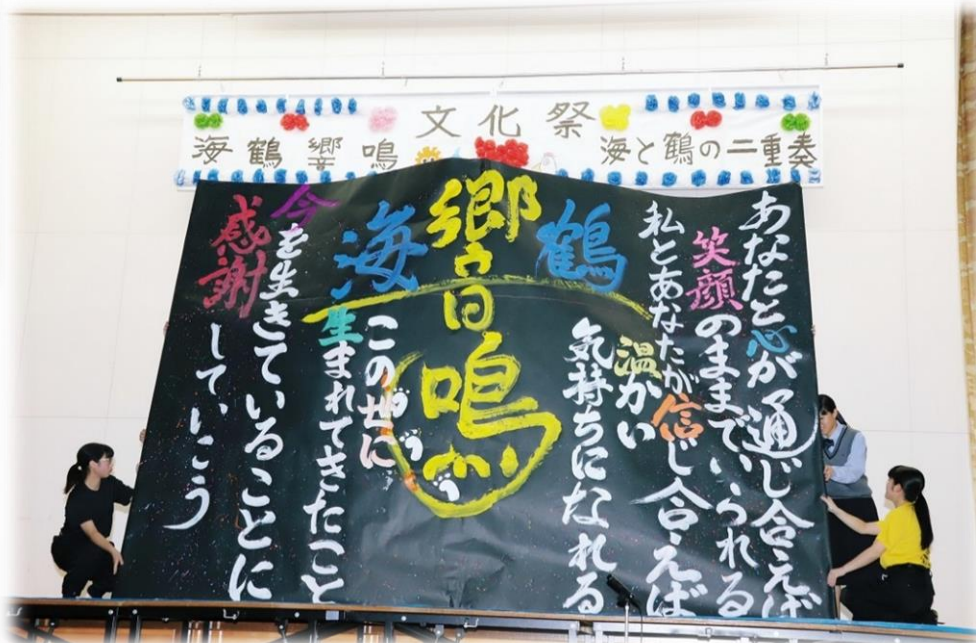 文化祭
海鶴響鳴
海と鶴の二重奏
あなたと心が通じ合えば
笑顔のままでいられる
私とあなたが信じ合えば
温かい
気持ちになれる
鶴
響鳴
海
この地に
生まれてきたこと
今を生きていることに
感謝
していこう